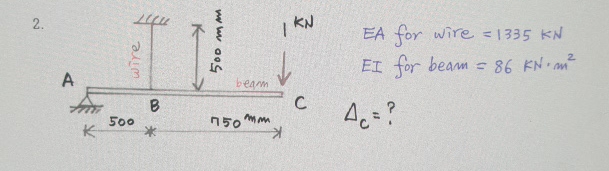 2.
wire
500 mm
1 KN
EA for wire = 1335 KN
EI for beam = 86 KN·m²
A
beam
B
C
Δc = ?
500
750 mm